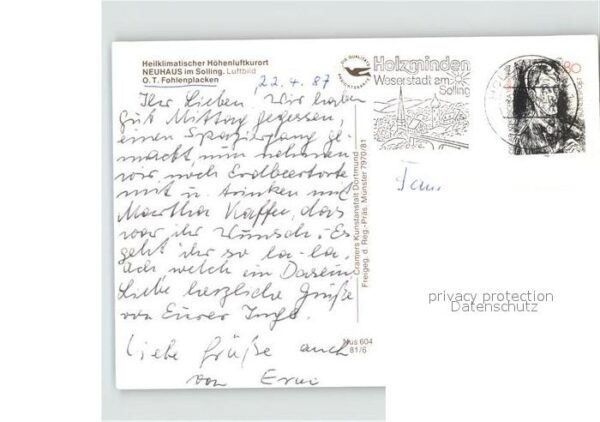 Heilklimatischer Höhenluftkurort
NEUHAUS im Solling. Luftbild
O.T. Fohlenplacken
22.4.87
Ihr Lieben! Wir haben
gut Mittag gegessen,
einen Spaziergang ge-
macht, nun nehmen
wir noch Erdbeertorte
mit u. trinken mit
Martha Kaffee, das
war ihr Wunsch. Es
geht ihr so la-la.
Ach welch ein Dasein.
Liebe herzliche Grüße
von Eurer Inge.
Liebe Grüße auch
von Erni
Cramers Kunstanstalt Dortmund
Freigeg. d. Reg.-Präs. Münster 7970/81
Nus 604
81/6
Holzminden
Weserstadt am
Solling
80
Fam
privacy protection
Datenschutz